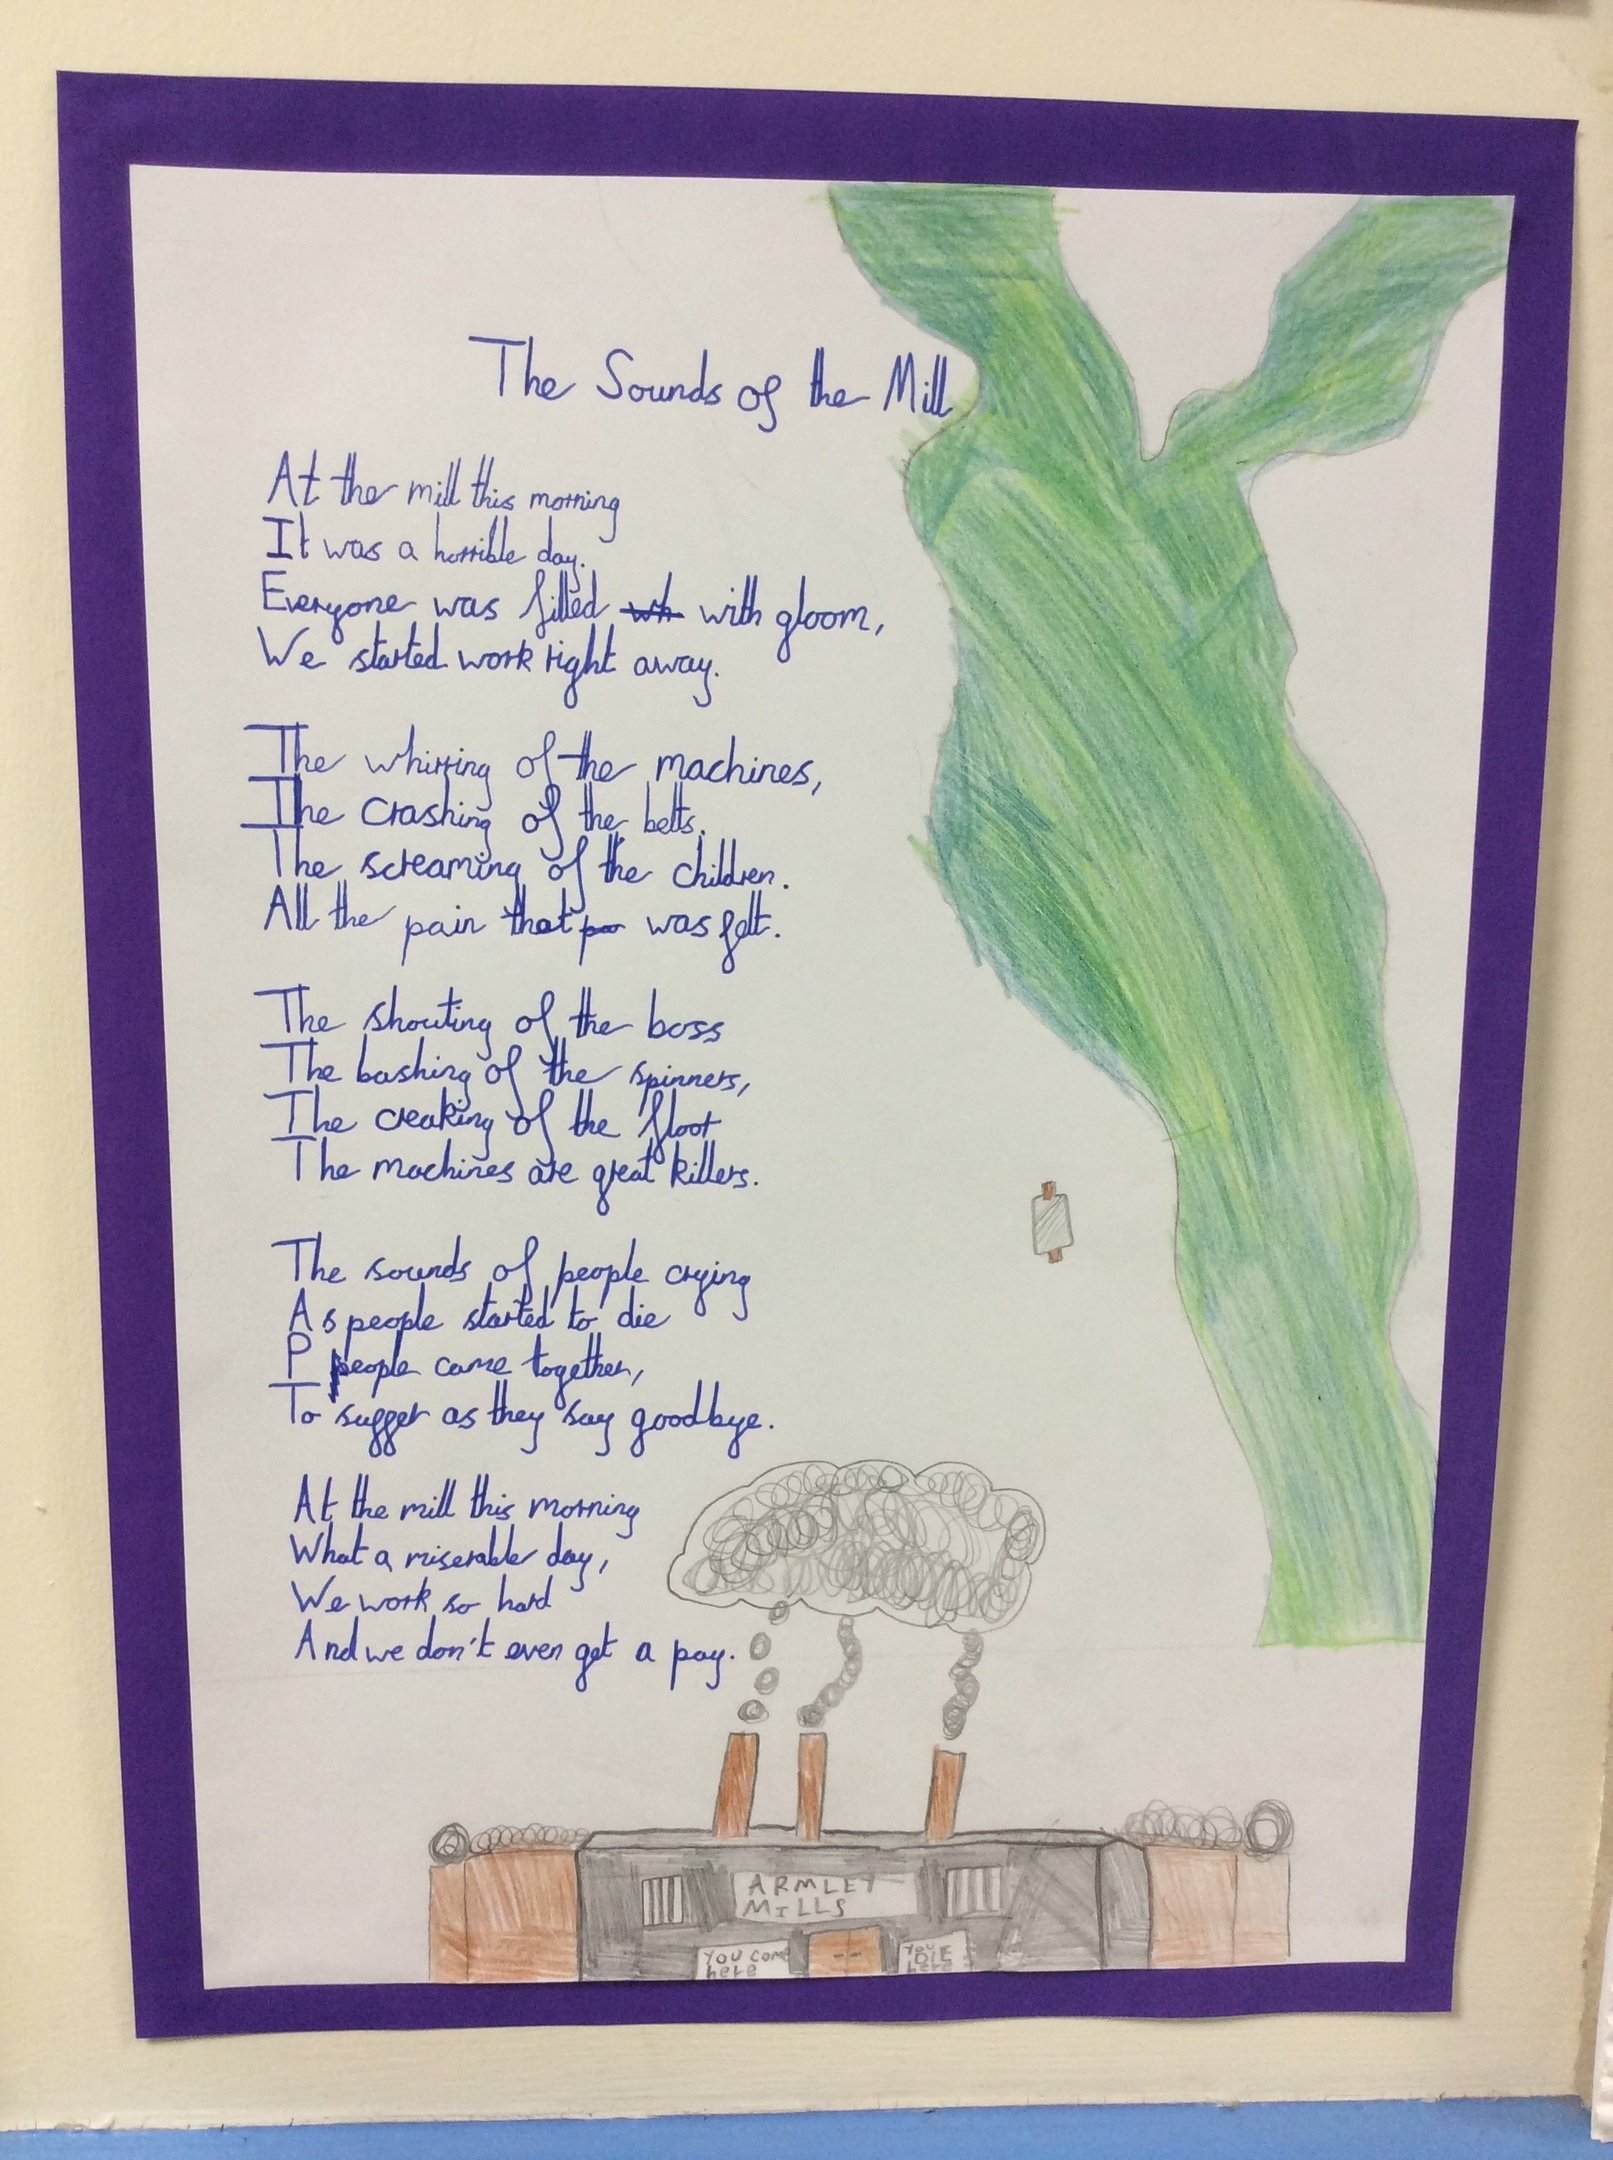 The Sounds of the Mill
At the mill this morning
It was a horrible day.
Everyone was filled wh with gloom,
We started work right away.
The whirring of the machines,
The crashing of the belts.
The screaming of the children.
All the pain that pa was felt.
The shouting of the boss
The bashing of the spinners,
The creaking of the floor
The machines are great killers.
The sounds of people crying
As people started to die
P people came together,
To suffer as they say goodbye.
At the mill this morning
What a miserable day,
We work so hard
And we don't even get a pay.
ARMLEY
MILLS
YOU COME
here
YOU DIE
here